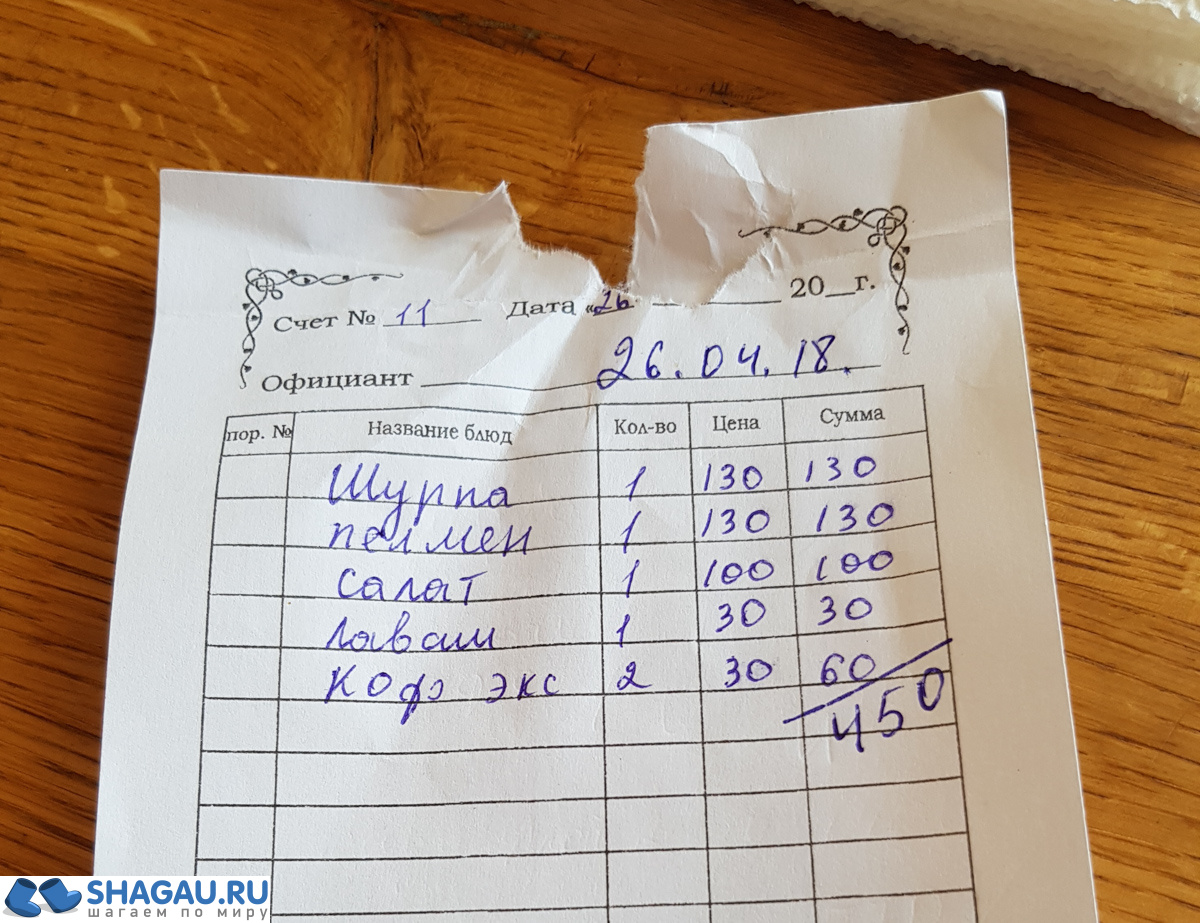 Счет № 11 Дата «26 20 г.
Официант 26.04.18.
пор. № Название блюд Кол-во Цена Сумма
Шурпа 1 130 130
пелмен 1 130 130
Салат 1 100 100
Лаваш 1 30 30
Кофэ экс 2 30 60
450
SHAGAU.RU
шагаем по миру